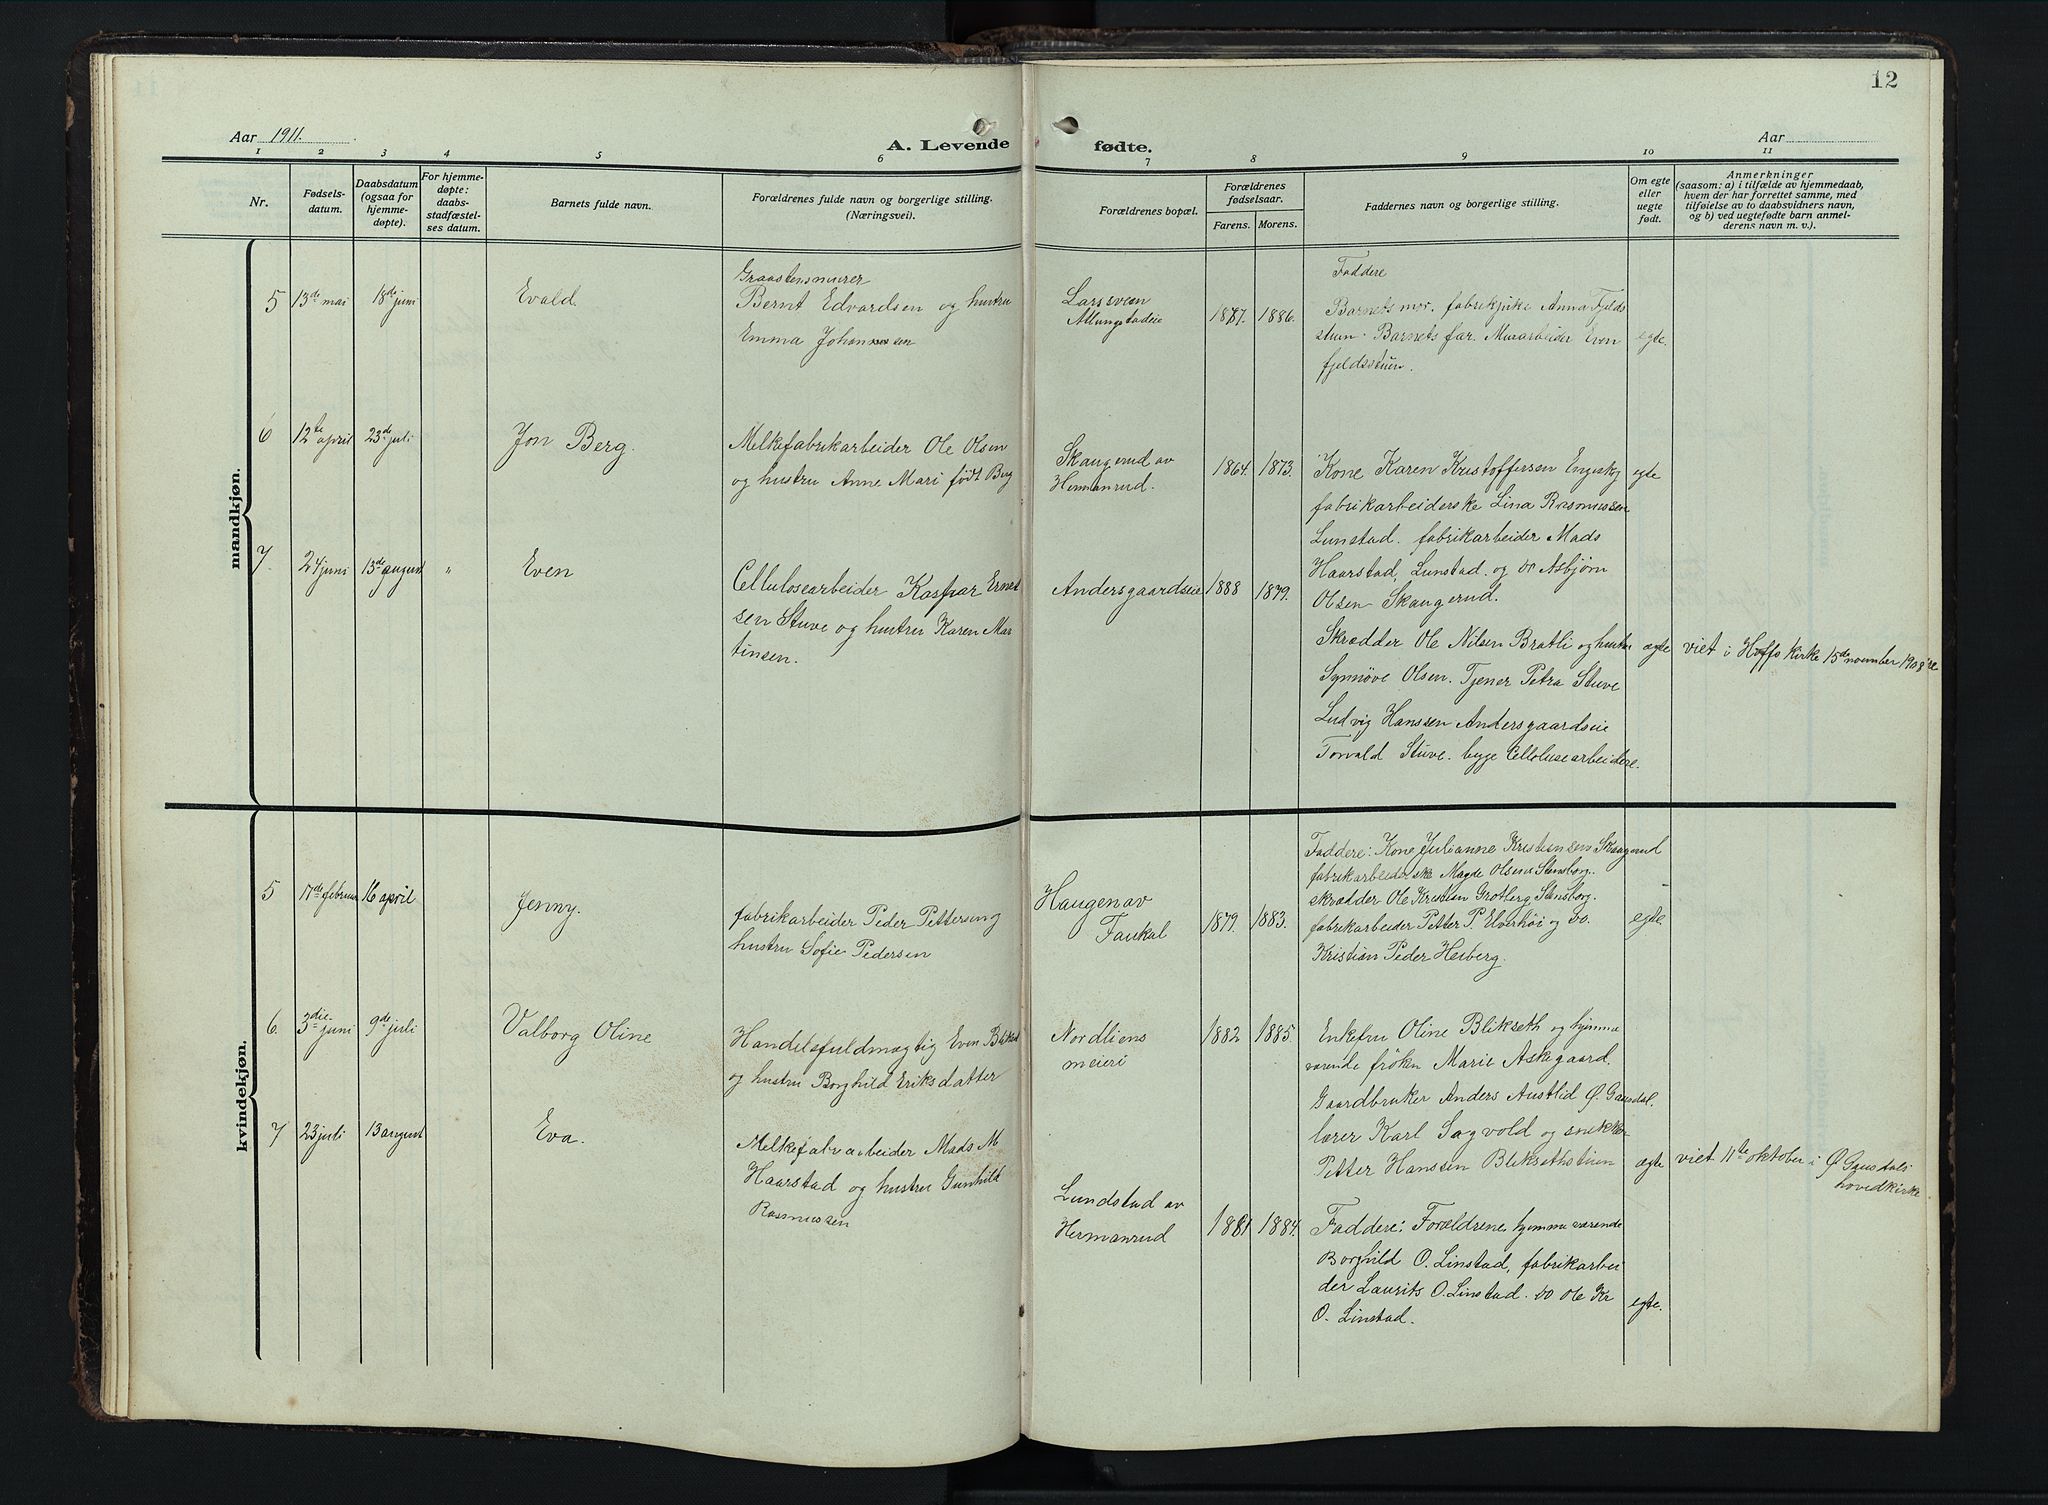 12
Aar 1911.
A. Levende fødte.
Aar
1 2 3 4 5 6 7 8 9 10 11
Nr.
Fødsels-
datum.
Daabsdatum
(ogsaa for
hjemme-
døpte).
For hjemme-
døpte:
daabs-
stadfæstel-
ses datum.
Barnets fulde navn.
Forældrenes fulde navn og borgerlige stilling.
(Næringsvei).
Forældrenes bopæl.
Forældrenes
fødselsaar.
Farens. Morens.
Faddernes navn og borgerlige stilling.
Om egte
eller
uegte
født.
Anmerkninger
(saasom: a) i tilfælde av hjemmedaab,
hvem der har forrettet samme, med
tilføielse av to daabsvidners navn,
og b) ved uegtefødte barn anmel-
derens navn m. v.).
mandkjøn.
5
13de mai
18de juni
Evald
Graastensmurer
Bernt Edvardsen og hustru
Emma Johannessen
Larssveen
Alungstadeie
1887.
1886.
Faddere
Barnets mor. fabrikpike Anna Fjelds
stuen. Barnets far. Murarbeider Even
fjeldsstuen.
egte.
6
12te april
23de juli
Jon Berg.
Melkefabrikarbeider Ole Olsen
og hustru Anne Mari født Berg
Skaugerud av
Hermanrud.
1864
1873.
Kone Karen Kristoffersen Engesky
fabrikarbeiderske Lina Rasmussen
Lunstad. fabrikarbeider Mads
Haarstad, Lunstad. og do Asbjørn
Olsen Skaugerud.
egte
7
24 juni
13de august
"
Even
Cellulosearbeider Kaspar Ernst
sen Stuve og hustru Karen Mar
tinsen.
Andersgaardseie
1888
1879.
Skrædder Ole Nilsen Bratli og hustru
Synnøve Olsen. Tjener Petra Stuve
Ludvig Hanssen Andersgaardseie
Torvald Stuve. begge Cellolusearbeidere.
ægte
viet i Hoffs kirke 15de november 1908
kvindekjøn.
5
17de februar
16 april
Jenny.
fabrikarbeider Peder Pettersen og
hustru Sofie Pedersen
Haugen av
Faukal
1879.
1883.
Faddere: Kone Julianne Kristiansen Skaugerud
fabrikarbeiderske Magde Olsen Stensborg.
skrædder Ole Kristian Grotberg Stensborg.
fabrikarbeider Petter P. Elverhøi og do.
Kristian Peder Heiberg.
egte.
6.
3die juni
9de juli
Valborg Oline
Handelsfuldmægtig Even Blikset
og hustru Borghild Eriksdatter
Nordliens
meieri
1882
1885.
Enkefru Oline Blikseth og hjemme
værende frøken Marie Askegaard.
Gaardbruker Anders Austlid Ø. Gausdal.
lærer Karl Sagvold og snekker
Petter Hanssen Bliksethstuen
ægte
viet 11te oktober i Ø Gausdals
hovedkirke
7
23 juli
13 august
Eva.
Melkefabrarbeider Mads M
Haarstad og hustru Gunhild
Rasmussen
Lundstad av
Hermanrud
1881
1884.
Faddere: Forældrene, hjemmeværende
Borghild O. Linstad, fabrikarbei
der Laurits O. Linstad. do Ole Kr
O. Linstad.
egte.